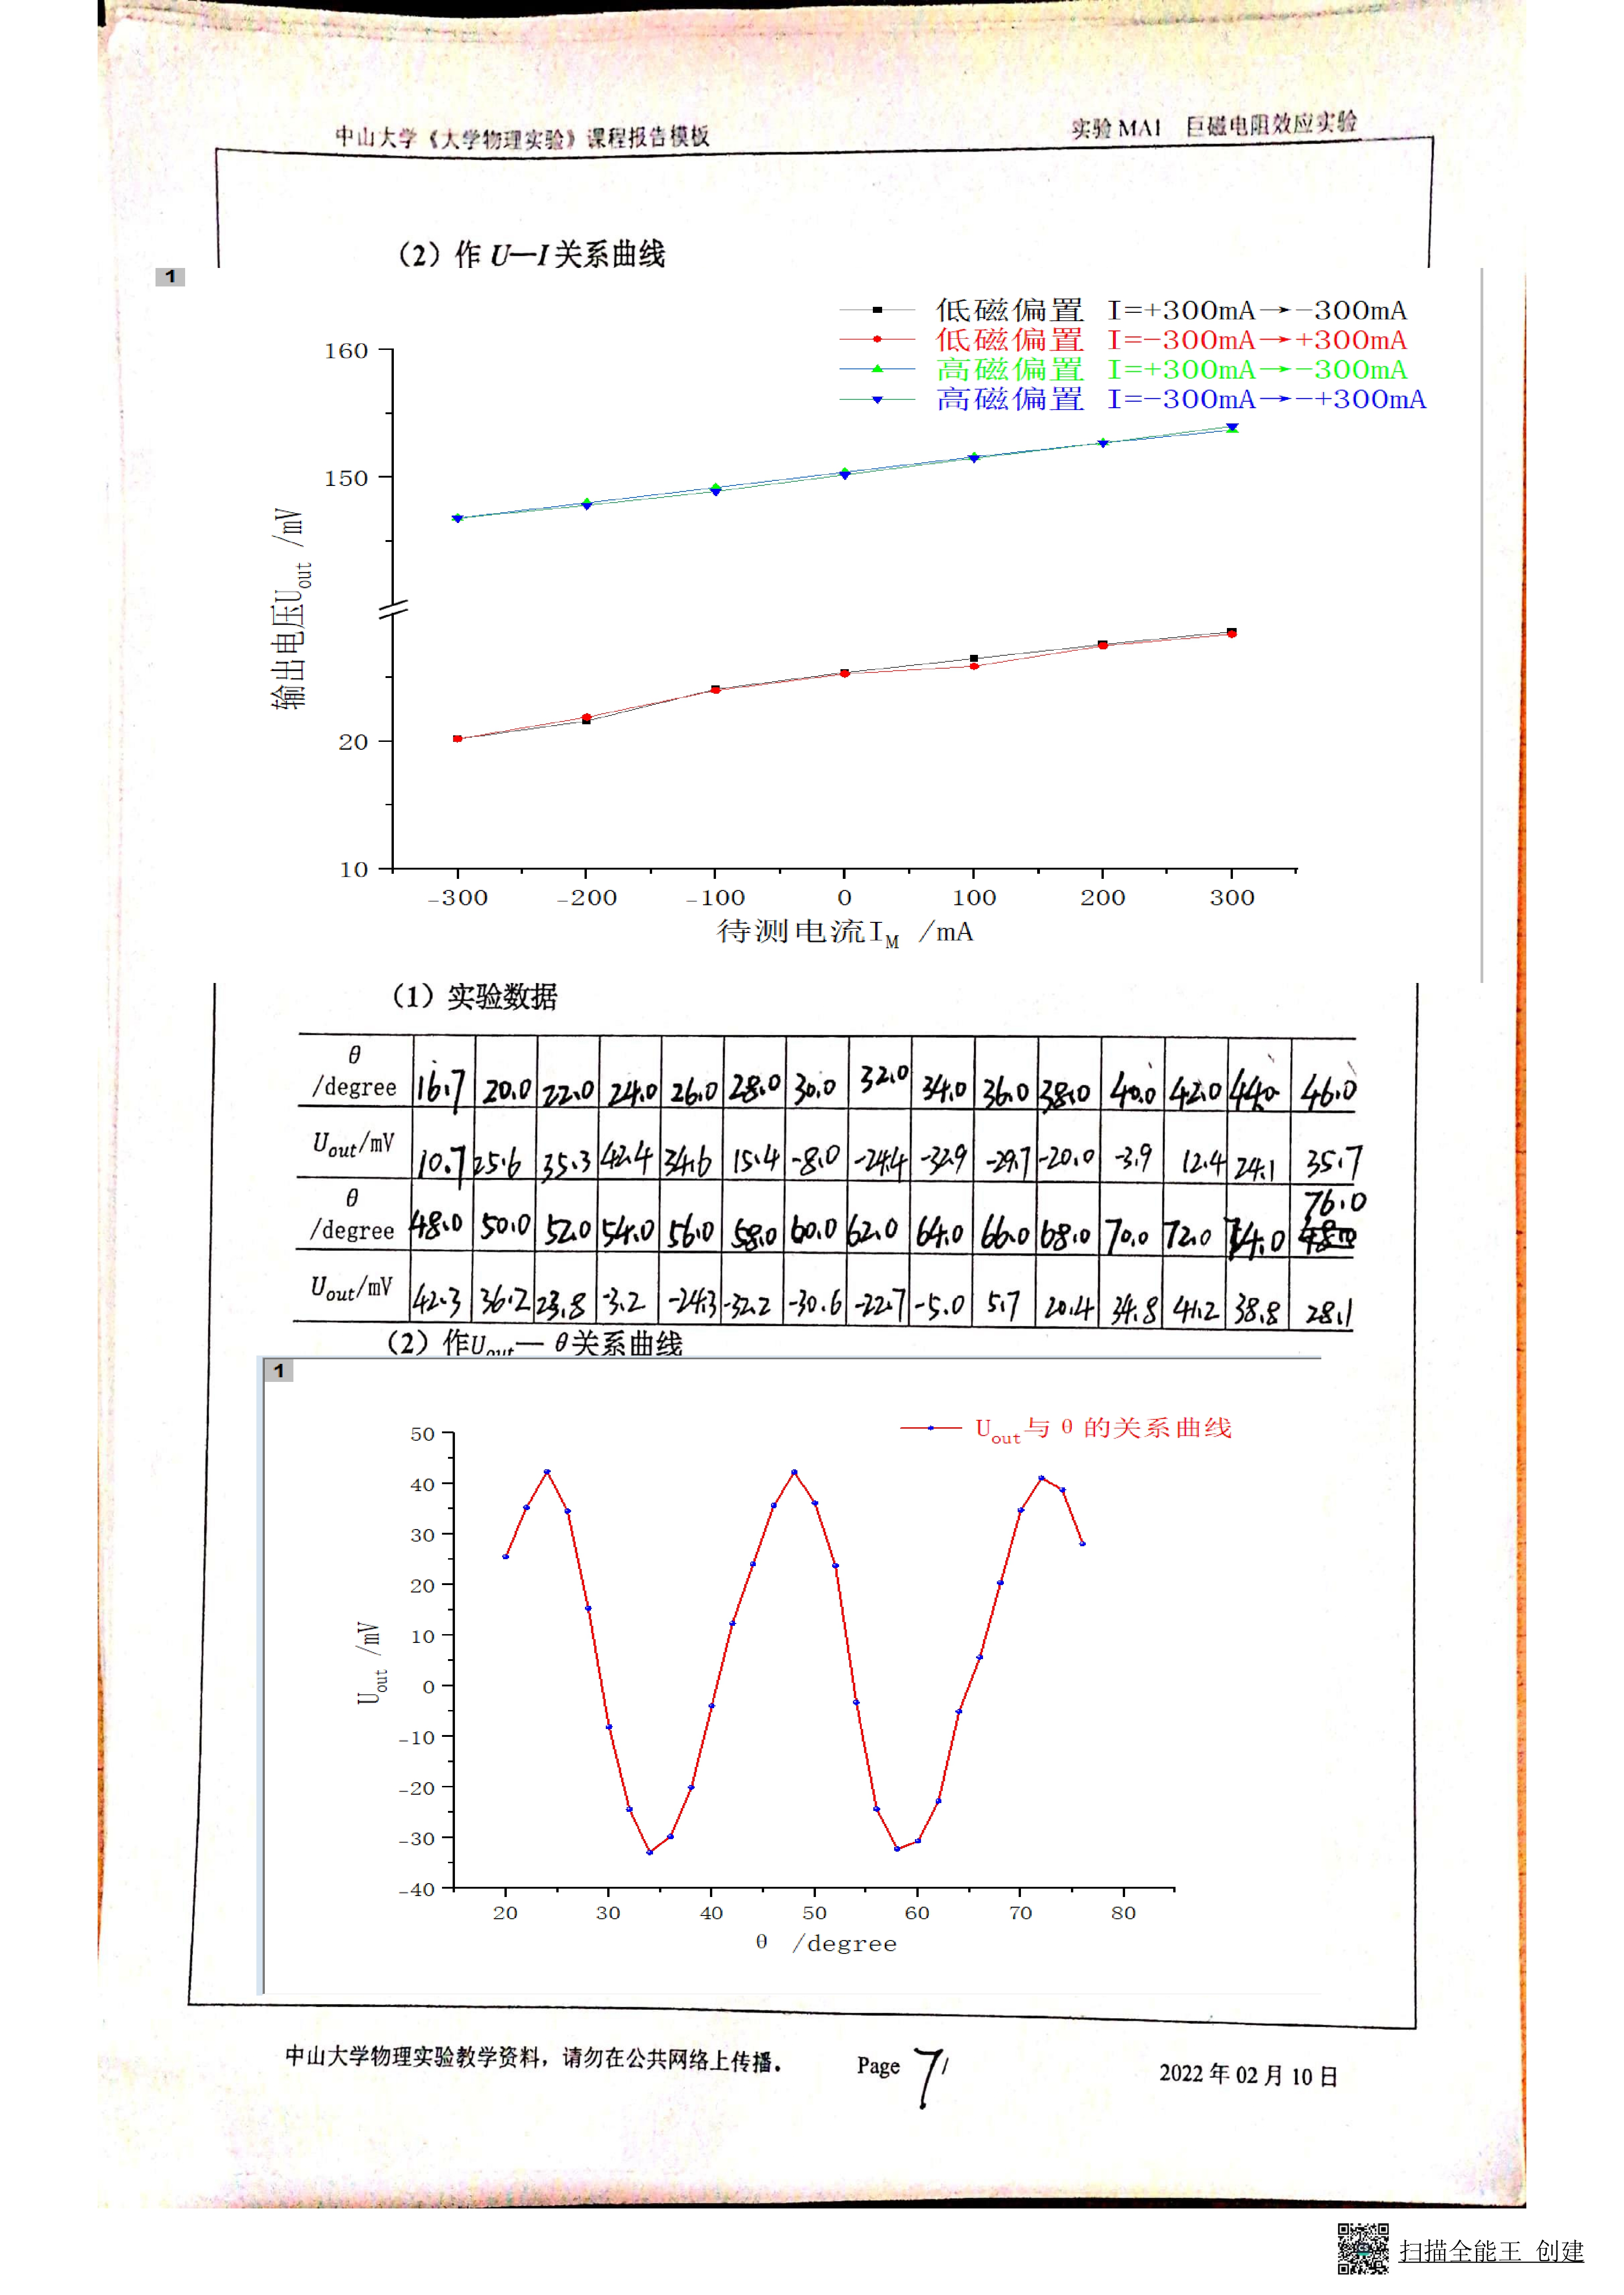 中山大学《大学物理实验》课程报告模板 实验 MA1 巨磁电阻效应实验
（2）作 U—I 关系曲线
1
低磁偏置 I=+300mA→-300mA
低磁偏置 I=-300mA→+300mA
高磁偏置 I=+300mA→-300mA
高磁偏置 I=-300mA→-+300mA
160
150
20
10
输出电压Uout /mV
-300 -200 -100 0 100 200 300
待测电流IM /mA
（1）实验数据
θ /degree 16.7 20.0 22.0 24.0 26.0 28.0 30.0 32.0 34.0 36.0 38.0 40.0 42.0 44.0 46.0
Uout/mV 10.7 25.6 35.3 42.4 34.6 15.4 -8.0 -24.4 -32.9 -29.7 -20.0 -3.9 12.4 24.1 35.7
θ /degree 48.0 50.0 52.0 54.0 56.0 58.0 60.0 62.0 64.0 66.0 68.0 70.0 72.0 74.0 76.0
Uout/mV 42.3 36.2 23.8 -3.2 -24.3 -32.2 -30.6 -22.7 -5.0 5.7 20.4 34.8 41.2 38.8 28.1
（2）作Uout— θ关系曲线
1
Uout与 θ 的关系曲线
50
40
30
20
10
0
-10
-20
-30
-40
Uout /mV
20 30 40 50 60 70 80
θ /degree
中山大学物理实验教学资料，请勿在公共网络上传播。 Page 7/ 2022 年 02 月 10 日
扫描全能王 创建